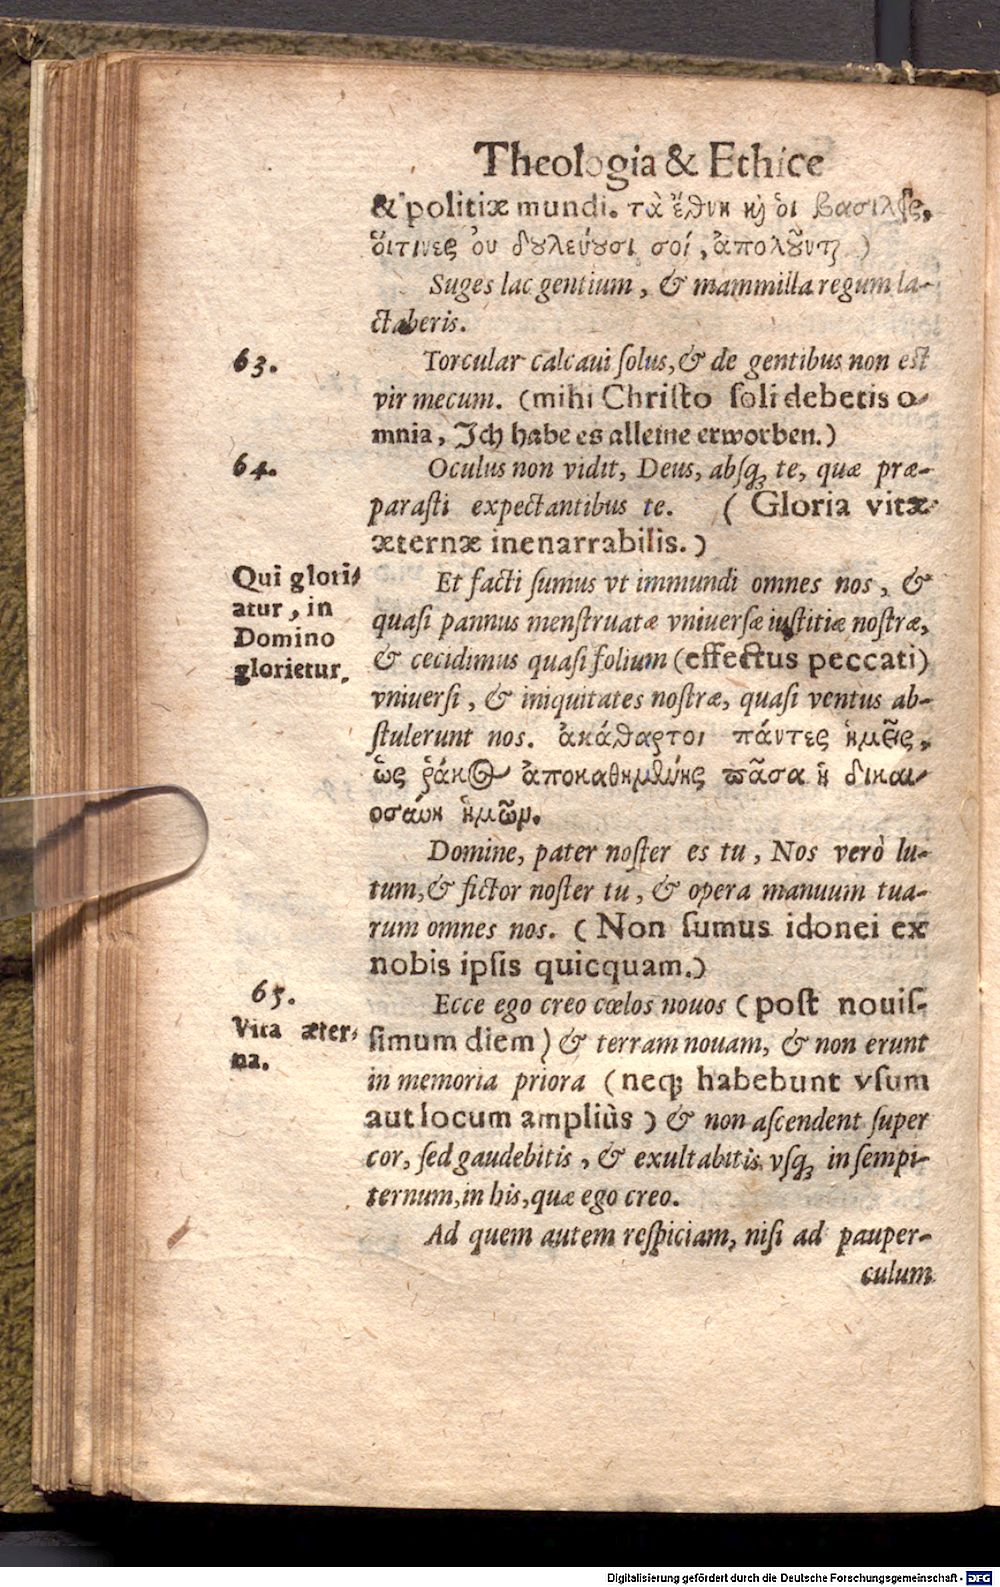 Theologia & Ethice
& politiæ mundi. τὰ ἔθνη κỳ ὁι βασιλεῖς,
ὅιτινες ὀυ δουλεύουσι σοί, ἀπολοῦνται )
Suges lac gentium, & mammilla regum la-
ctaberis.
63.
Torcular calcaui ſolus, & de gentibus non est
vir mecum. (mihi Chriſto ſoli debetis o-
mnia, Ich habe es alleine erworben.)
64.
Oculus non vidit, Deus, abſq; te, quæ præ-
paraſti expectantibus te. ( Gloria vitæ
æternæ inenarrabilis.)
Qui glori-
atur, in
Domino
glorietur.
Et facti ſumus vt immundi omnes nos, &
quaſi pannus menſtruatæ vniuerſæ iuſtitiæ noſtræ,
& cecidimus quaſi folium (effectus peccati)
vniuerſi, & iniquitates noſtræ, quaſi ventus ab-
ſtulerunt nos. ἀκάθαρτοι πάντες ἡμεῖς,
ὡς ῥάκος ἀποκαθημένης πᾶσα ἡ δικαι-
οσύνη ἡμῶν.
Domine, pater noſter es tu, Nos verò lu-
tum, & fictor noſter tu, & opera manuum tua-
rum omnes nos. ( Non ſumus idonei ex
nobis ipſis quicquam.)
65.
Vita æter-
na.
Ecce ego creo cœlos nouos (poſt nouiſ-
ſimum diem) & terram nouam, & non erunt
in memoria priora (neq; habebunt vſum
aut locum ampliùs) & non aſcendent ſuper
cor, ſed gaudebitis, & exultabitis vſq; in ſempi-
ternum, in his, quæ ego creo.
Ad quem autem reſpiciam, niſi ad pauper-
culum
Digitalisierung gefördert durch die Deutsche Forschungsgemeinschaft - DFG